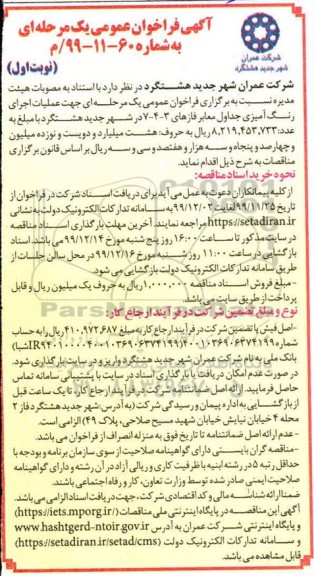 آگهی فراخوان عمومی یک مرحله‌ای
به شماره ۶۰-۱۱-۹۹/م
(نوبت اول)
شرکت عمران
شهر جدید هشتگرد
شرکت عمران شهر جدید هشتگرد در نظر دارد با استناد به مصوبات هیئت
مدیره نسبت به برگزاری فراخوان عمومی یک مرحله‌ای جهت عملیات اجرای
رنگ آمیزی جداول معابر فازهای ۳-۴-۷ در شهر جدید هشتگرد با مبلغ به
عدد: ۸,۲۱۹,۴۵۳,۷۳۳ ریال به حروف: هشت میلیارد و دویست و نوزده میلیون
و چهارصد و پنجاه و سه هزار و هفتصد و سی و سه ریال بر اساس قانون برگزاری
مناقصات به شرح ذیل اقدام نماید.
نحوه خرید اسناد مناقصه:
از کلیه پیمانکاران دعوت به عمل می آید برای دریافت اسناد شرکت در فراخوان از
تاریخ ۹۹/۱۱/۲۵ لغایت ۹۹/۱۲/۰۲ به سامانه تدارکات الکترونیک دولت به نشانی
https://setadiran.ir مراجعه نمایند. آخرین مهلت بارگذاری اسناد مناقصه
در سایت مذکور تا ساعت ۱۶:۰۰ روز پنج شنبه مورخ ۹۹/۱۲/۱۴ می باشد. اسناد
بارگذاری در ساعت ۱۱:۰۰ روز شنبه مورخ ۹۹/۱۲/۱۶ در محل سالن جلسات از
طریق سامانه تدارکات الکترونیک دولت بازگشایی می شود.
- مبلغ فروش اسناد مناقصه ۱,۰۰۰,۰۰۰ ریال به حروف یک میلیون ریال و قابل
پرداخت از طریق سایت می باشد.
نوع و مبلغ تضمین شرکت در فرآیند ارجاع کار:
-اصل فیش یا تضمین شرکت در فرآیند ارجاع کار به مبلغ ۴۱۰,۹۷۲,۶۸۷ ریال را به حساب
شماره
بانک ملی به نام شرکت عمران شهر جدید هشتگرد واریز و در سایت بارگذاری شود.
در صورت عدم امکان دریافت یا بارگذاری اسناد در سایت با پشتیبانی سامانه تماس
حاصل فرمایید. ارائه اصل ضمانتنامه شرکت در فرآیند ارجاع کار، تا یک ساعت قبل
از بازگشایی به اداره پیمان و رسیدگی شرکت (به آدرس: شهر جدید هشتگرد فاز ۲
محله ۴ خیابان نیایش خیابان شهید مسیح صلاحی، پلاک ۴۹) الزامی است.
- عدم ارائه اصل ضمانتنامه تا تاریخ فوق به منزله انصراف از فراخوان می باشد.
- مناقصه گران بایستی دارای گواهینامه صلاحیت از سوی سازمان برنامه و بودجه با
حداقل رتبه ۵ در رشته ابنیه با ظرفیت کاری و ریالی آزاد در آن رشته و دارای گواهینامه
صلاحیت ایمنی صادر شده توسط وزارت تعاون، کار و رفاه اجتماعی باشند.
ضمنا ارائه شناسه ملی و کد اقتصادی شرکت، جهت دریافت اسناد الزامی می باشد.
آگهی این مناقصه در پایگاه اینترنتی ملی مناقصات (https://iets.mporg.ir/)
و پایگاه اینترنتی شرکت عمران به آدرس www.hashtgerd-ntoir.gov.ir
و سامانه تدارکات الکترونیک دولت (https://setadiran.ir/setad/cms)
قابل مشاهده می باشد.